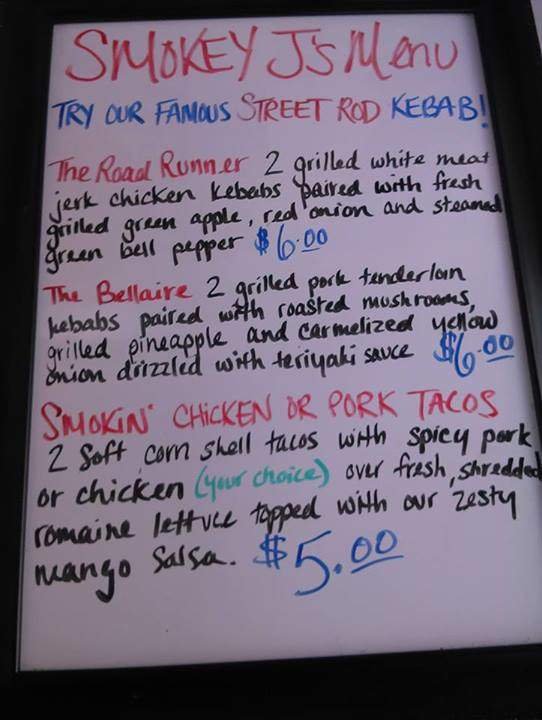 SMOKEY J's Menu
TRY OUR FAMOUS STREET ROD KEBAB!
The Road Runner 2 grilled white meat
jerk chicken kebabs paired with fresh
grilled green apple, red onion and steamed
green bell pepper $6.00
The Bellaire 2 grilled pork tenderloin
kebabs paired with roasted mushrooms,
grilled pineapple and carmelized yellow
onion drizzled with teriyaki sauce $6.00
SMOKIN' CHICKEN OR PORK TACOS
2 Soft corn shell tacos with spicy pork
or chicken (your choice) over fresh, shredded
romaine lettuce topped with our zesty
mango salsa. $5.00